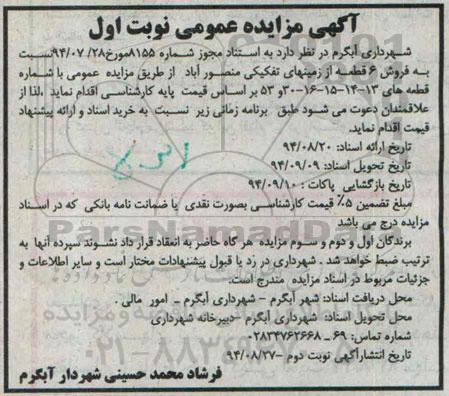 آگهی مزایده عمومی نوبت اول
شهرداری آبگرم در نظر دارد به استناد مجوز شماره ۸۱۵۵مورخ۹۴/۰۷/۲۸نسبت
به فروش ۶ قطعه از زمینهای تفکیکی منصور آباد از طریق مزایده عمومی با شماره
قطعه های ۱۳-۱۴-۱۵-۱۶-۳۰و ۵۳ بر اساس قیمت پایه کارشناسی اقدام نماید .لذا از
علاقمندان دعوت می شود طبق برنامه زمانی زیر نسبت به خرید اسناد و ارائه پیشنهاد
قیمت اقدام نماید.
تاریخ ارائه اسناد: ۹۴/۰۸/۲۰
تاریخ تحویل اسناد: ۹۴/۰۹/۰۹
تاریخ بازگشایی پاکات : ۹۴/۰۹/۱۰
مبلغ تضمین ۵٪ قیمت کارشناسی بصورت نقدی یا ضمانت نامه بانکی که در اسناد
مزایده درج می باشد
برندگان اول و دوم و سوم مزایده هر گاه حاضر به انعقاد قرار داد نشوند سپرده آنها به
ترتیب ضبط خواهد شد . شهرداری در رد یا قبول پیشنهادات مختار است و سایر اطلاعات و
جزئیات مربوط در اسناد مزایده مندرج است.
محل دریافت اسناد: شهر آبگرم - شهرداری آبگرم - امور مالی .
محل تحویل اسناد: شهرداری آبگرم -دبیرخانه شهرداری
شماره تماس: ۶۹ - ۰۲۸۳۴۷۶۲۶۶۸
تاریخ انتشارآگهی نوبت دوم -۹۴/۰۸/۲۷
فرشاد محمد حسینی شهردار آبگرم
ParsNamadData
۰۲۱-۸۸۳۴۹